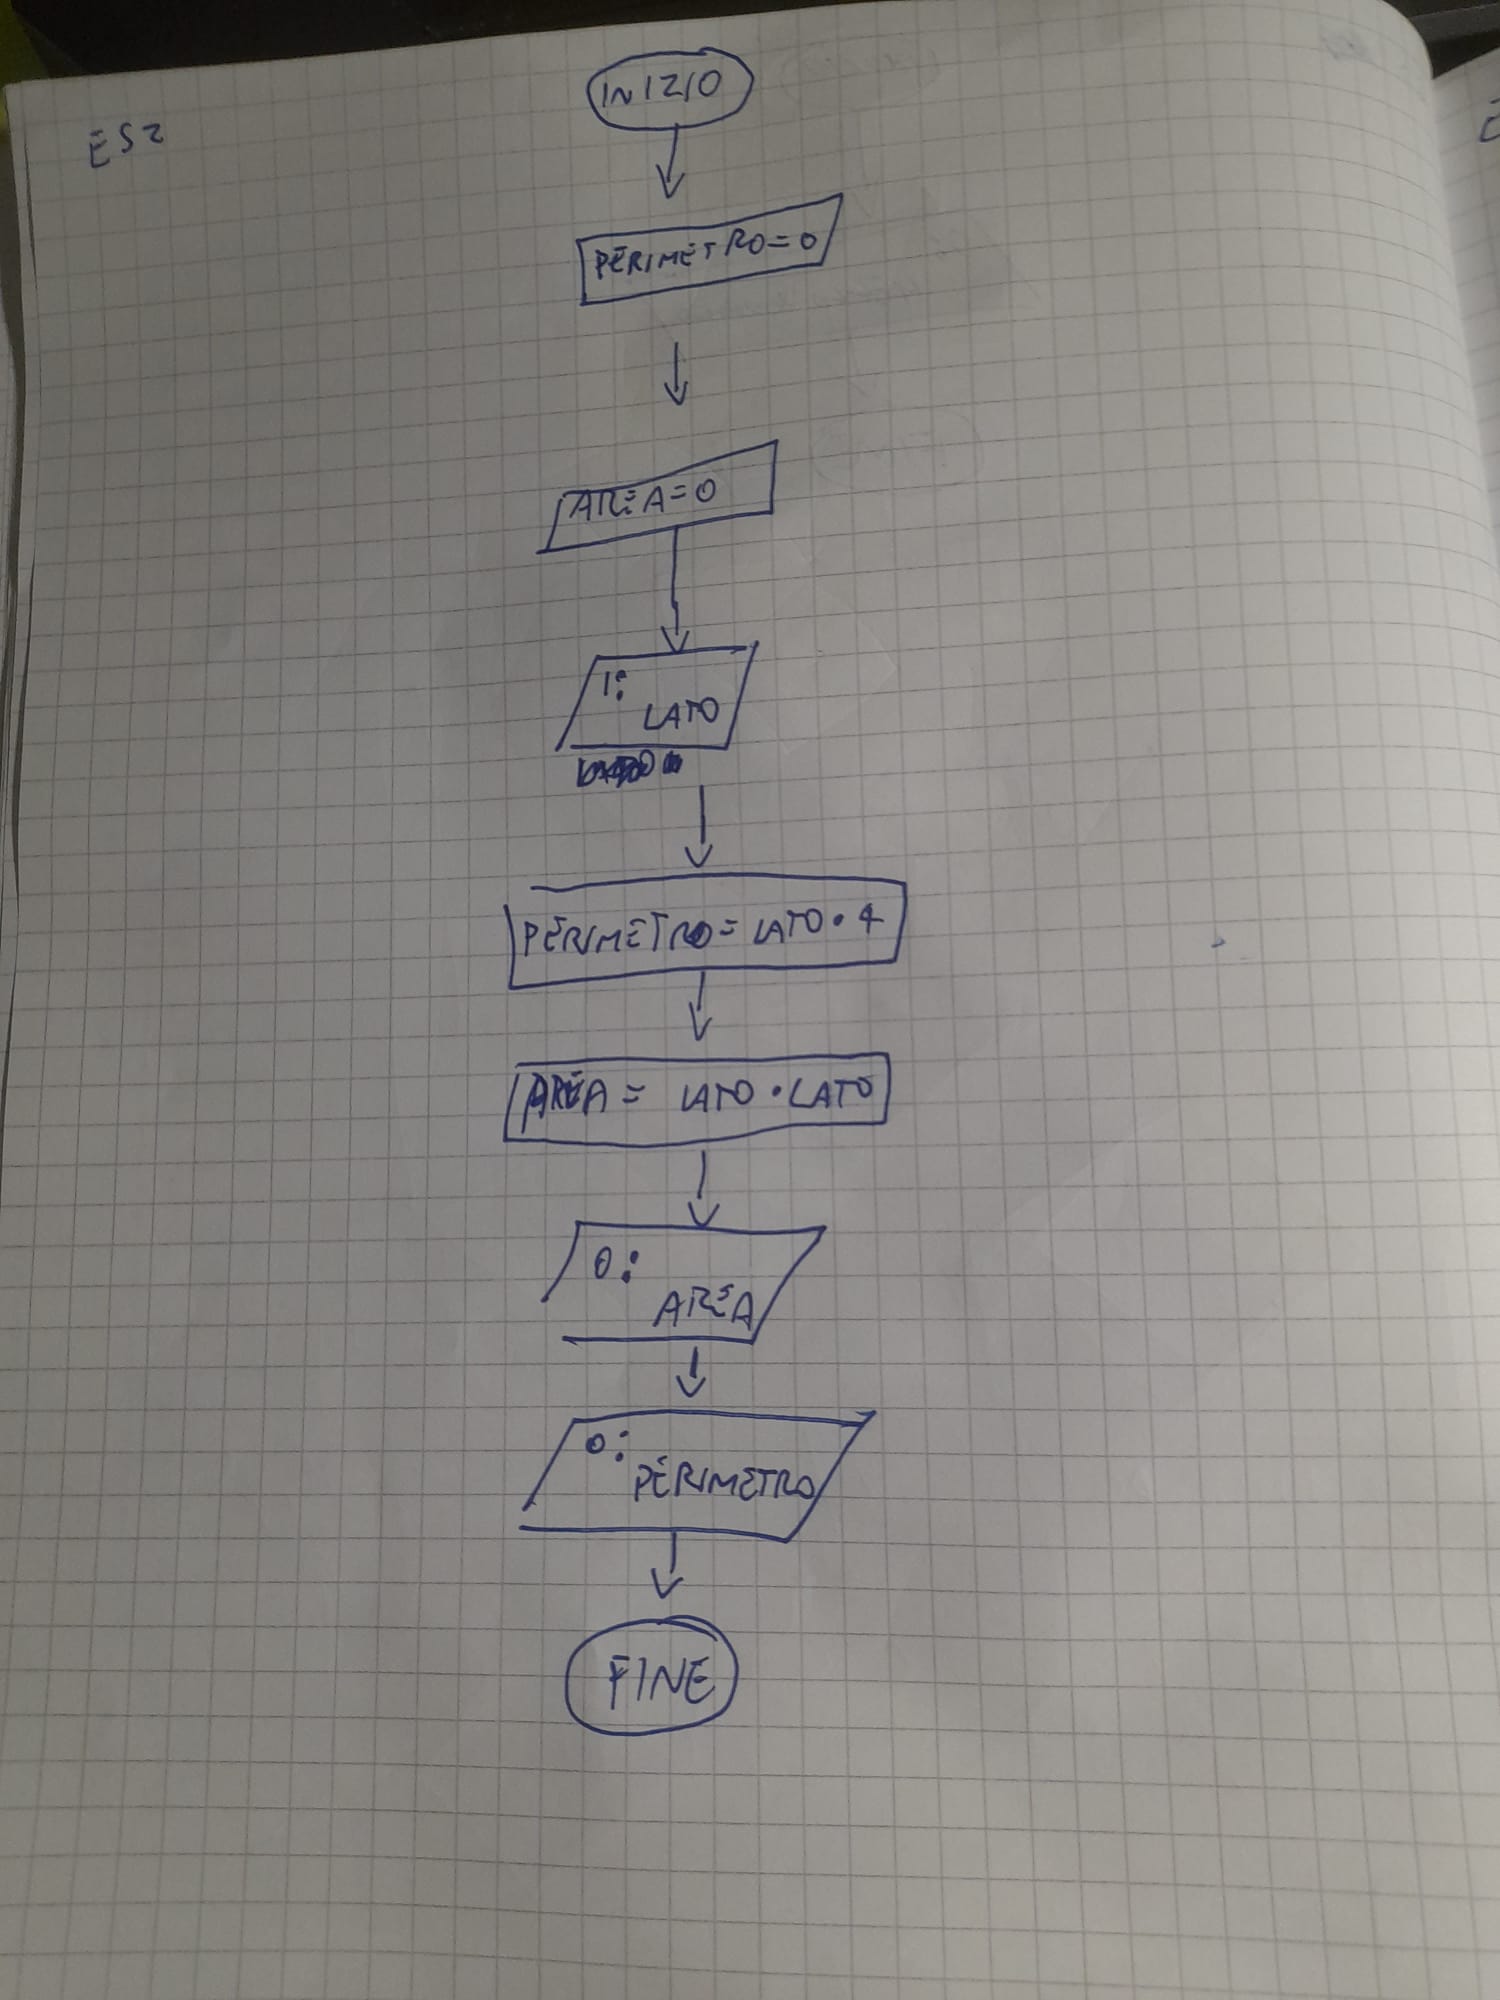 INIZIO
ES2
PERIMETRO=0
AREA=0
I:
LATO
PERIMETRO= LATO • 4
AREA= LATO • LATO
O:
AREA
O:
PERIMETRO
FINE